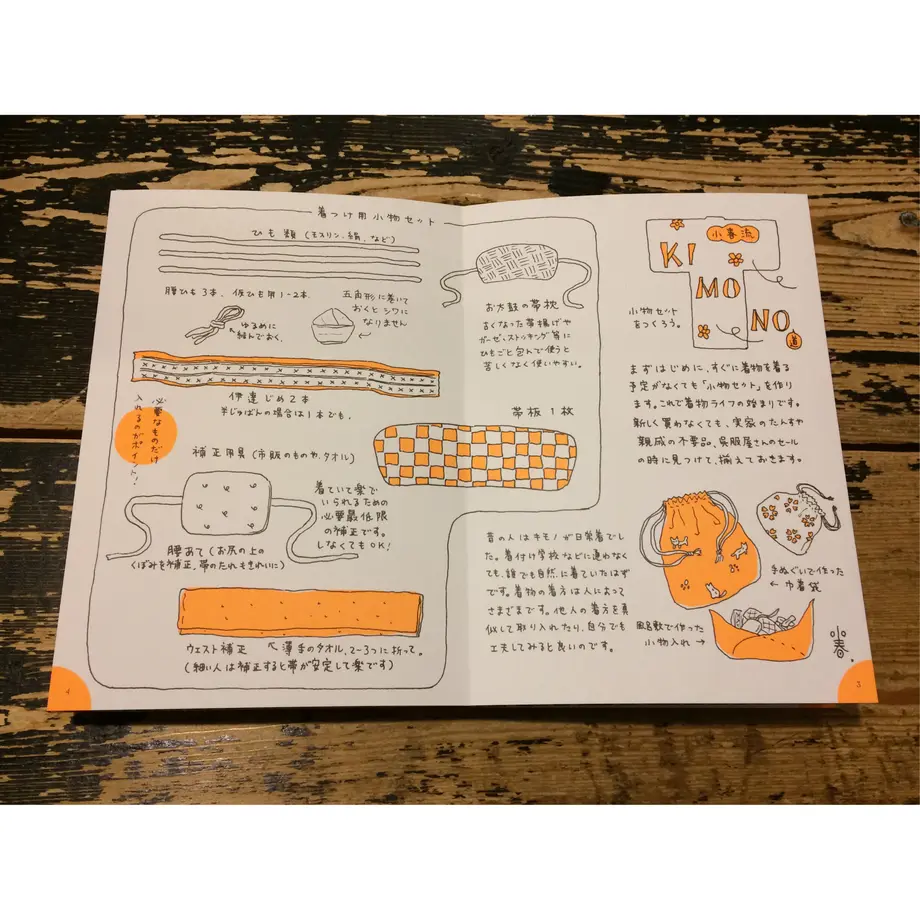 小春流
KI
MO
NO
道
小物セット
をつくろう。
まずはじめに、すぐに着物を着る
予定がなくても「小物セット」を作り
ます。これで着物ライフの始まりです。
新しく買わなくても、実家のたんすや
親戚の不要品、呉服屋さんのセール
の時に見つけて、揃えておきます。
手ぬぐいで作った
← 巾着袋
風呂敷で作った
小物入れ →
小春.
3
昔の人はキモノが日常着でし
た。着付け学校などに通わなく
ても、誰でも自然に着ていたはず
です。着物の着方は人によって
さまざまです。他人の着方を真
似して取り入れたり、自分でも
工夫してみると良いのです。
着つけ用小物セット
ひも類(モスリン、絹、など)
腰ひも3本、仮ひも用1~2本
ゆるめに
結んでおく
五角形に巻いて
おくとシワに
なりません
伊達じめ2本
半じゅばんの場合は1本でも。
必要なものだけ
入れるのがポイント!
お太鼓の帯枕
古くなった帯揚げや
ガーゼ、ストッキング等に
ひもごと包んで使うと
苦しくなく使いやすい。
帯板1枚
補正用具(市販のものや、タオル)
着ていて楽で
いられるための
必要最低限
の補正です。
しなくてもOK!
腰あて(お尻の上の
くぼみを補正。帯のたれもきれいに)
ウェスト補正
薄手のタオル、2~3つに折って。
(細い人は補正すると帯が安定して楽です)
4